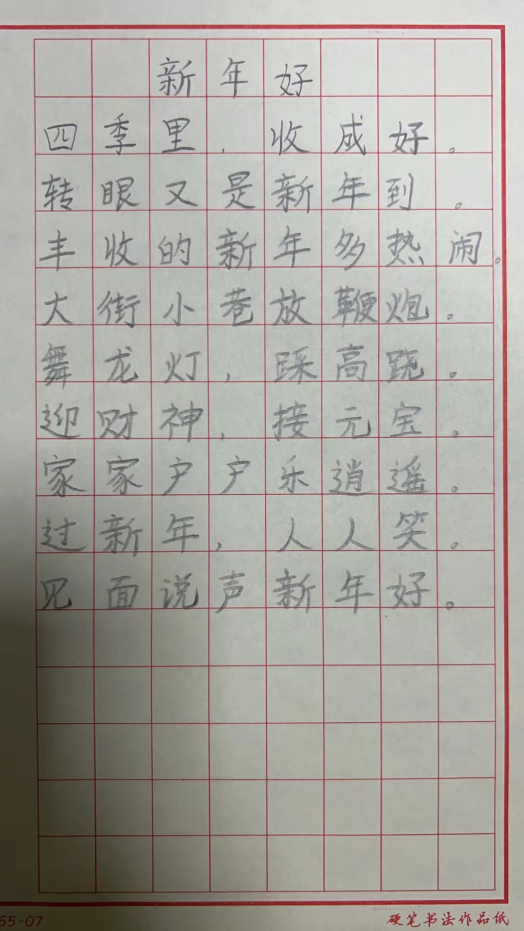 新年好
四季里，收成好。
转眼又是新年到。
丰收的新年多热闹。
大街小巷放鞭炮。
舞龙灯，踩高跷。
迎财神，接元宝。
家家户户乐逍遥。
过新年，人人笑。
见面说声新年好。
55-07
硬笔书法作品纸